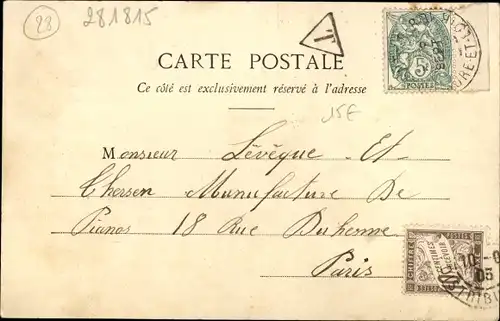 28
281815
T
CARTE POSTALE
Ce côté est exclusivement réservé à l'adresse
15E
Monsieur Lévêque et
Thersen Manufacture De
Pianos 18 Rue Duhesme
Paris
5
POSTES
EURE-ET-
CHIFFRE POSTES
10
05
DISTRIBU